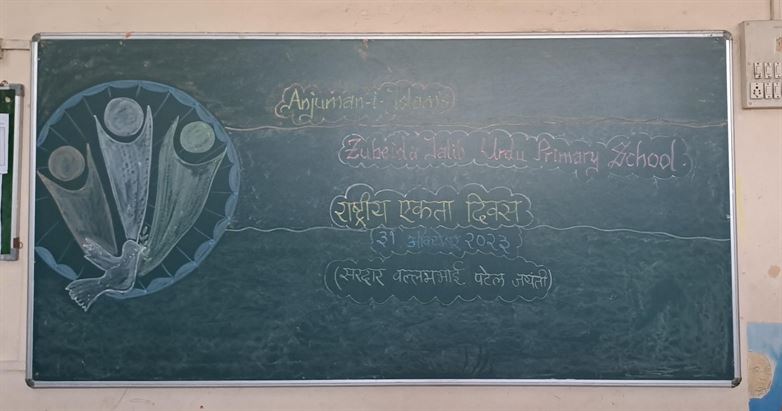 Anjuman-i-Islam's
Zubeida Talib Urdu Primary School.
राष्ट्रीय एकता दिवस
३१ ऑक्टोबर २०२३
(सरदार वल्लभभाई पटेल जयंती)